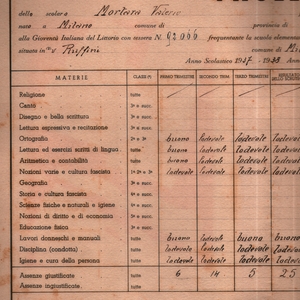 dello scolar Mortara
nato a Milano comune di provincia di
alla Gioventù Italiana del Littorio con tessera N. frequentante la scuola elementare
situata in Ruffini comune di
Anno Scolastico 1937-1938
MATERIE CLASSI PRIMO TRIMESTRE SECONDO TRIM. TERZO TRIMESTRE
Religione tutte
Canto
Disegno e bella scrittura
Lettura espressiva e recitazione
Ortografia buono lodevole lodevole lodevole
Lettura ed esercizi scritti di lingua tutte buono lodevole lodevole lodevole
Aritmetica e contabilità tutte buono lodevole lodevole lodevole
Nozioni varie e cultura fascista lodevole lodevole lodevole lodevole
Geografia
Storia e cultura fascista
Scienze fisiche e naturali e igiene
Nozioni di diritto e di economia
Educazione fisica
Lavori donneschi e manuali tutte buono lodevole buono buono
Disciplina (condotta) tutte lodevole lodevole lodevole lodevole
Igiene e cura della persona tutte lodevole lodevole lodevole lodevole
Assenze giustificate tutte 6 14 5 25
Assenze ingiustificate tutte